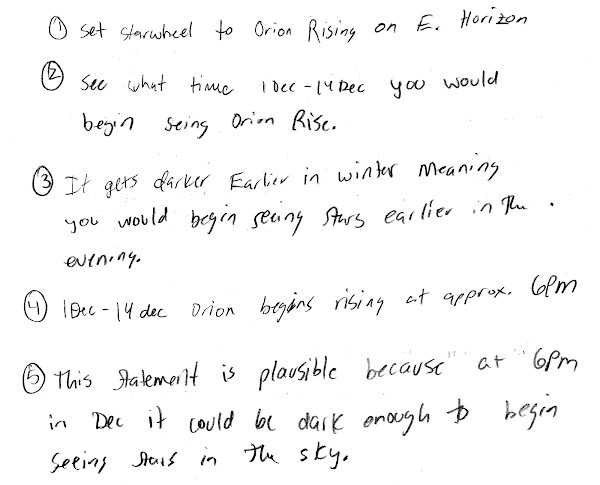 ① Set starwheel to Orion Rising on E. Horizon
② See what time 1 Dec - 14 Dec you would
begin seing Orion Rise.
③ It gets darker Earlier in winter Meaning
you would begin seeing Stars earlier in The .
evening.
④ 1 Dec - 14 dec Orion begins rising at approx. 6pm
⑤ This Statement is plausible because at 6pm
in Dec it could be dark enough to begin
seeing stars in the sky.